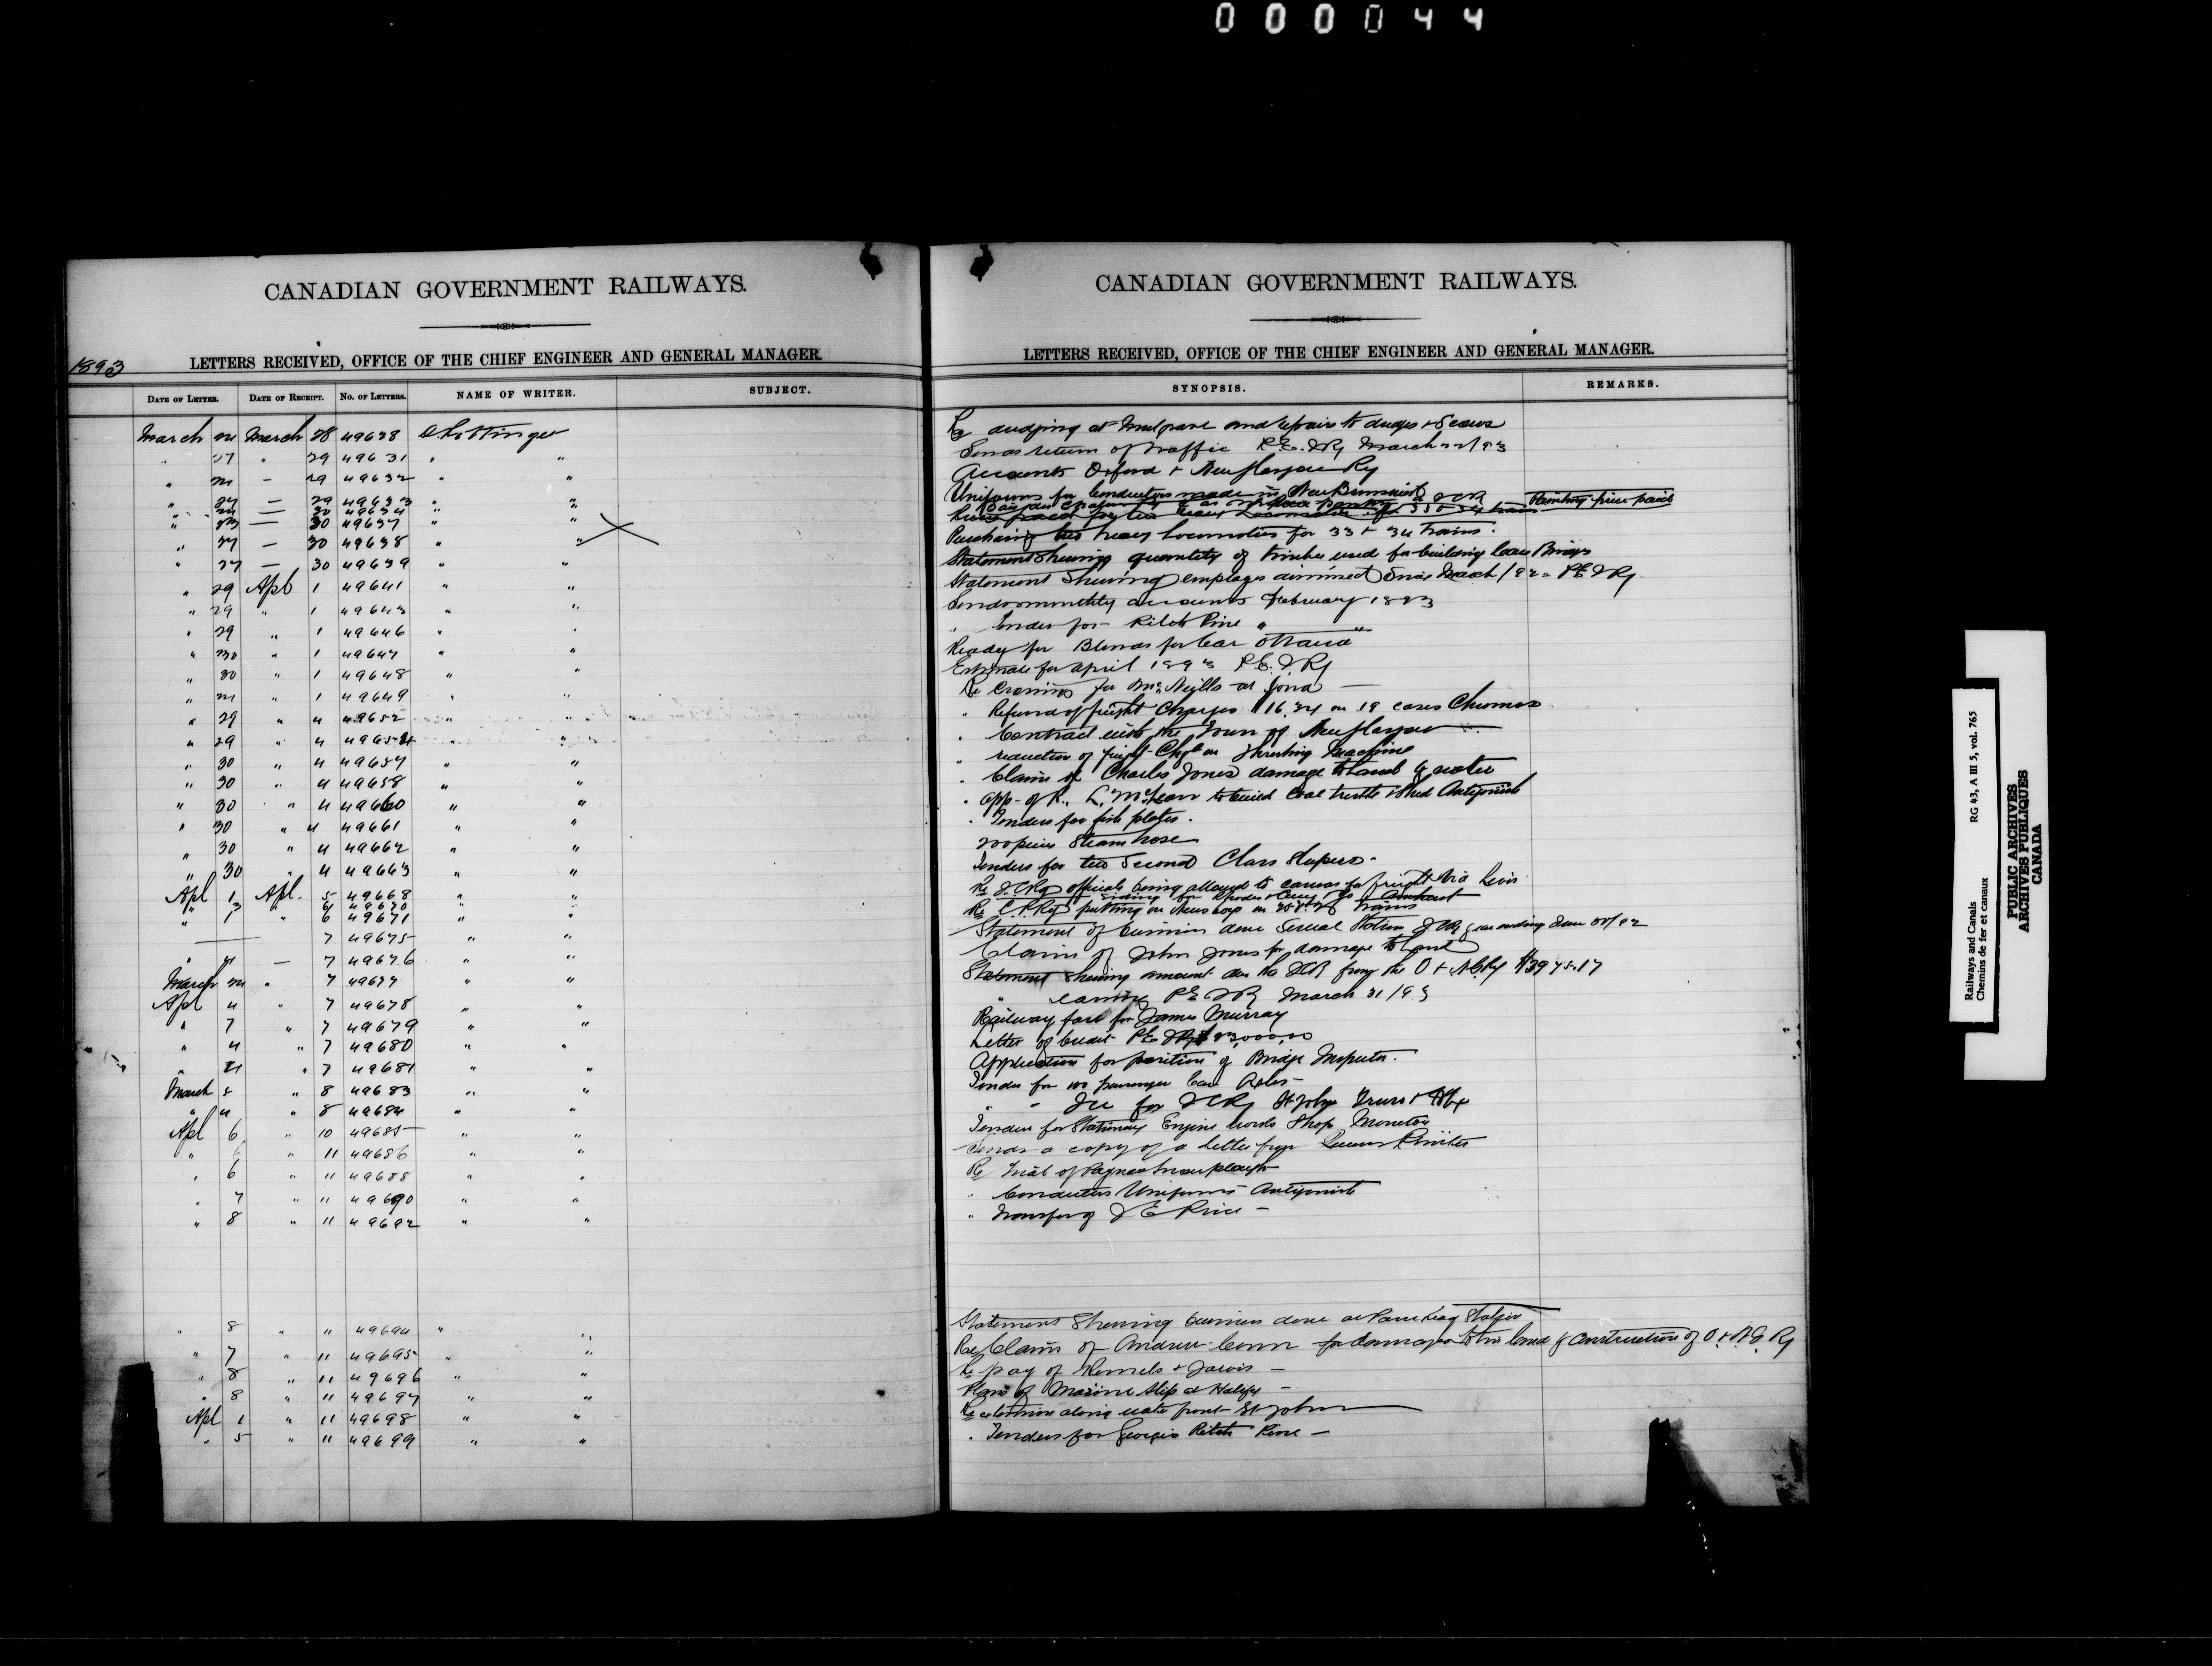 000044
CANADIAN GOVERNMENT RAILWAYS.
1893
LETTERS RECEIVED, OFFICE OF THE CHIEF ENGINEER AND GENERAL MANAGER.
DATE OF LETTER. DATE OF RECEIPT. No. OF LETTERS. NAME OF WRITER. SUBJECT.
March March 28 49628 Pottinger
" 27 " 29 49631 " "
" — 29 49632 " "
" 27 — 29 49633 " "
" — 30 49634 " "
" — 30 49637 " "
" 27 — 30 49638 " "
" 27 — 30 49639 " "
" 29 Apl 1 49641 " "
" 29 " 1 49643 " "
" 29 " 1 49646 " "
" 30 " 1 49647 " "
" 30 " 1 49648 " "
" " 1 49649 " "
" 29 " 4 49652 " "
" 29 " 4 49654 " "
" 30 " 4 49657 " "
" 30 " 4 49658 " "
" 30 " 4 49660 " "
" 30 " 4 49661 " "
" 30 " 4 49662 " "
" 30 " 4 49663 " "
Apl 1 Apl. 5 49668 " "
" 3 " 6 49670 " "
" " 6 49671 " "
— 7 49675 " "
" — 7 49676 " "
March " 7 49677 " "
Apl 4 " 7 49678 " "
" 7 " 7 49679 " "
" 4 " 7 49680 " "
" " 7 49681 " "
March 8 " 8 49683 " "
" 4 " 8 49684 " "
Apl 6 " 10 49685 " "
" 6 " 11 49686 " "
" 6 " 11 49688 " "
" 7 " 11 49690 " "
" 8 " 11 49692 " "
" 8 " 11 49694 " "
" 7 " 11 49695 " "
" 8 " 11 49696 " "
" 8 " 11 49697 " "
Apl 1 " 11 49698 " "
" 5 " 11 49699 " "
CANADIAN GOVERNMENT RAILWAYS.
LETTERS RECEIVED, OFFICE OF THE CHIEF ENGINEER AND GENERAL MANAGER.
SYNOPSIS. REMARKS.
Re dredging at Mulgrave and repairs to dredges & Scows
Sends return of Traffic P.E.I Ry March 22/93
Accounts Oxford & New Glasgow Ry
Uniforms for Conductors made in New Brunswick
price paid
Purchasing two heavy Locomotives for 33 & 34 Trains.
Statement shewing quantity of timber used for building
Statement Shewing employes dismissed Since March /92 P.E.I Ry
Sends monthly accounts February 1893
" Tender for Pitch Pine "
Ready for Blinds for Car Ottawa
Estimate for April 1893 P.E.I Ry
Re Crossing for McNeills at Iona —
" Refund of freight Charges $16.24 on 19 cases
" Contract with the Town of New Glasgow
" reduction of freight Chgs on Threshing Machine
" Claim of Charles Jones damage to land by water
" app. of R. L. McLean to build Coal trestle & shed Antigonish
" Tenders for fish plates.
200 pieces Steam hose
Tenders for two Second Class Sleepers.
Re I.C.Ry officials being allowed to canvas for freight via Levis
siding for Rhodes Curry & Co Amherst
Re C.P.Ry putting on News boys on trains
Statement of business done Several Station ICRy year ending June 30/92
Claim of John Jones for damage to land
Statement Shewing amount due the ICR from the O & NG Ry $3975.17
" earnings P.E.I Ry March 31/93
Railway fare for James Murray
Letter of Credit P.E.I Ry $23,000.00
Application for position of Bridge Inspector.
Tender for 100 passenger Car Axles
" " Ice for ICRy St John Truro & Hfx
Tenders for Stationary Engine Works Shop Moncton
Sends a copy of a letter from Queens Printer
Re Trial of
" Conductors Uniforms Antigonish
" Transfer of J E Price —
Statement Shewing business done at Station
Re Claim of Andrew for damages to his land by construction of O. & N.G. Ry
Re pay of & Jarvis —
Plans of Marine Slip at Halifax —
Re extension along water front St John
" Tenders for Georgia Pitch Pine —
Railways and Canals
Chemins de fer et canaux
RG 43, A III 5, vol. 765
PUBLIC ARCHIVES
ARCHIVES PUBLIQUES
CANADA